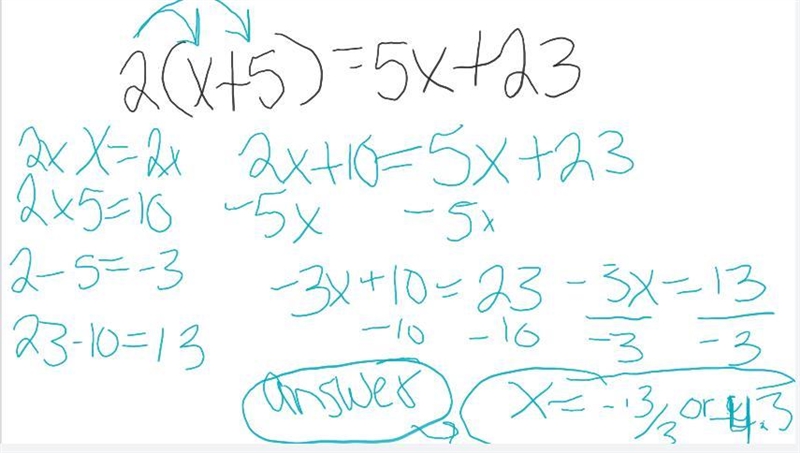 2(x+5)=5x+23
2x X=2x
2x5=10
2-5=-3
23-10=13
2x+10=5x+23
-5x -5x
-3x+10=23
-10 -10
-3x=13
-3 -3
answer
x=-13/3 or -4.3